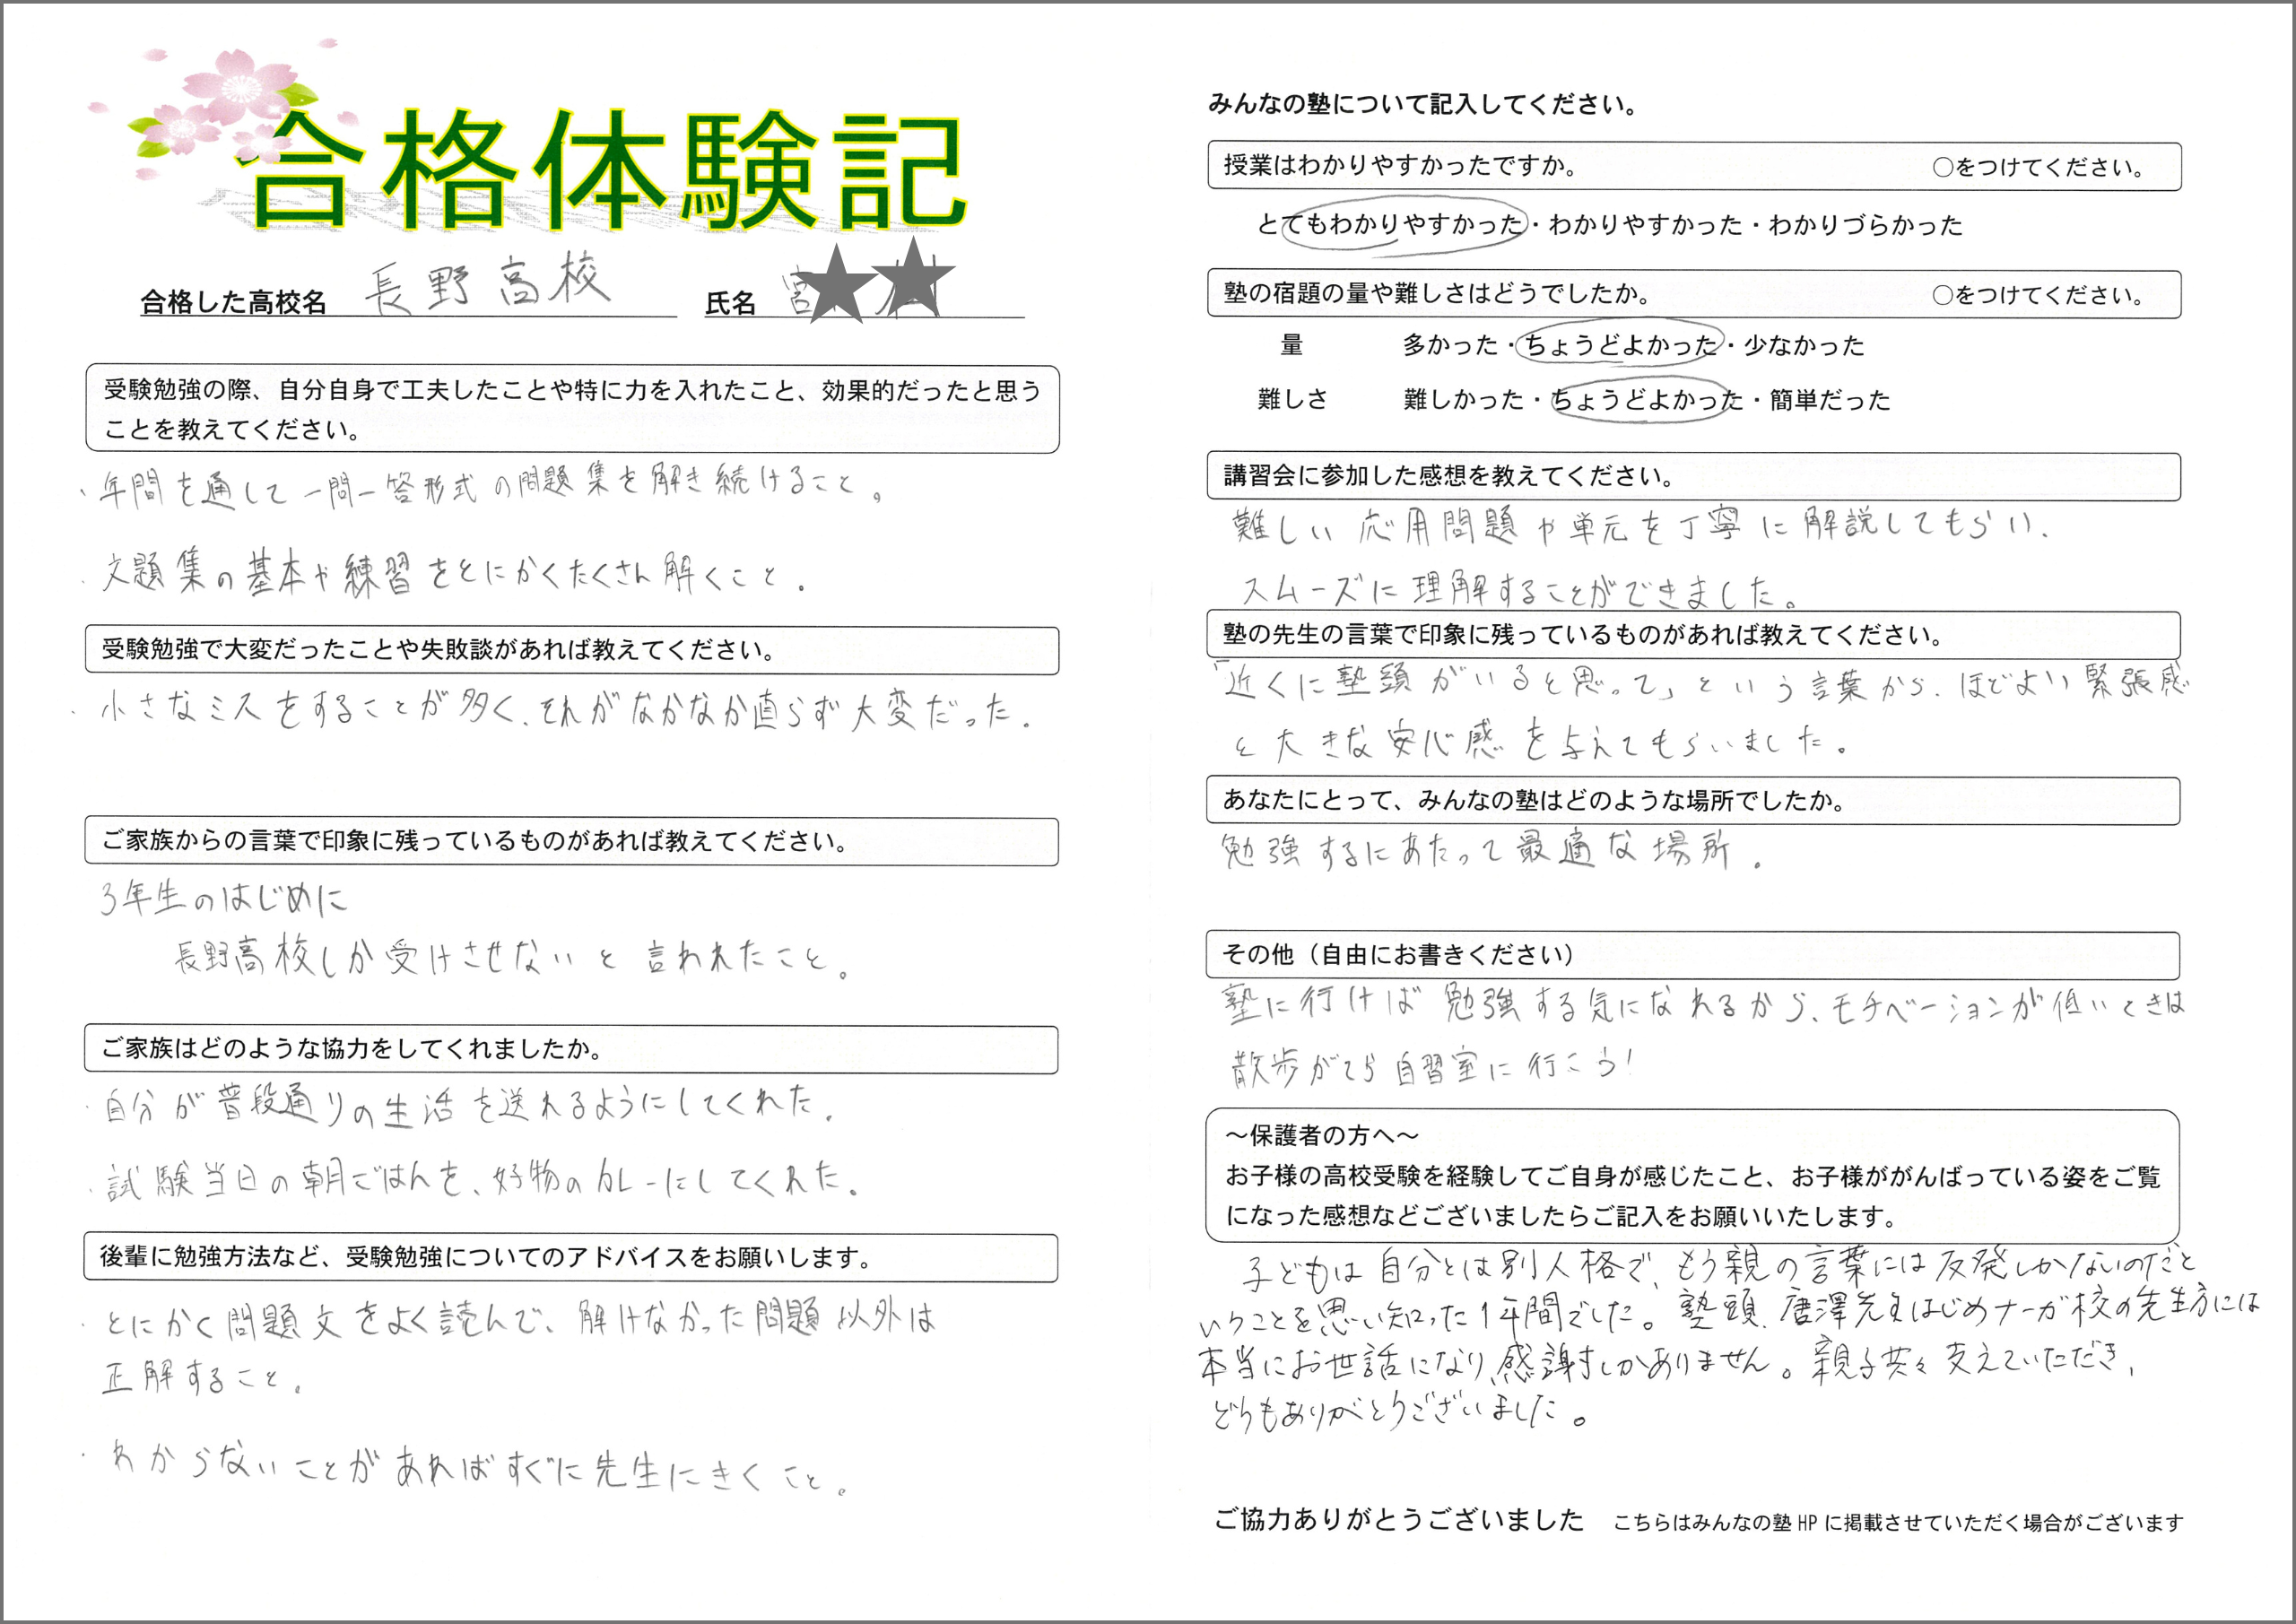 合格体験記
合格した高校名 長野高校 氏名 宮
受験勉強の際、自分自身で工夫したことや特に力を入れたこと、効果的だったと思う
ことを教えてください。
・年間を通して一問一答形式の問題集を解き続けること。
・文題集の基本や練習をとにかくたくさん解くこと。
受験勉強で大変だったことや失敗談があれば教えてください。
・小さなミスをすることが多く、それがなかなか直らず大変だった。
ご家族からの言葉で印象に残っているものがあれば教えてください。
3年生のはじめに
長野高校しか受けさせないと言われたこと。
ご家族はどのような協力をしてくれましたか。
・自分が普段通りの生活を送れるようにしてくれた。
・試験当日の朝ごはんを、好物のカレーにしてくれた。
後輩に勉強方法など、受験勉強についてのアドバイスをお願いします。
・とにかく問題文をよく読んで、解けなかった問題以外は
正解すること。
・わからないことがあればすぐに先生にきくこと。
みんなの塾について記入してください。
授業はわかりやすかったですか。 ○をつけてください。
とてもわかりやすかった・わかりやすかった・わかりづらかった
塾の宿題の量や難しさはどうでしたか。 ○をつけてください。
量 多かった・ちょうどよかった・少なかった
難しさ 難しかった・ちょうどよかった・簡単だった
講習会に参加した感想を教えてください。
難しい応用問題や単元を丁寧に解説してもらい、
スムーズに理解することができました。
塾の先生の言葉で印象に残っているものがあれば教えてください。
「近くに塾頭がいると思って」という言葉から、ほどよい緊張感
と大きな安心感を与えてもらいました。
あなたにとって、みんなの塾はどのような場所でしたか。
勉強するにあたって最適な場所。
その他（自由にお書きください）
塾に行けば勉強する気になれるから、モチベーションが低いときは
散歩がてら自習室に行こう！
～保護者の方へ～
お子様の高校受験を経験してご自身が感じたこと、お子様ががんばっている姿をご覧
になった感想などございましたらご記入をお願いいたします。
子どもは自分とは別人格で、もう親の言葉には反発しかないのだと
いうことを思い知った1年間でした。塾頭、唐澤先生はじめナーガ校の先生方には
本当にお世話になり、感謝しかありません。親子共々支えていただき、
どうもありがとうございました。
ご協力ありがとうございました こちらはみんなの塾HPに掲載させていただく場合がございます